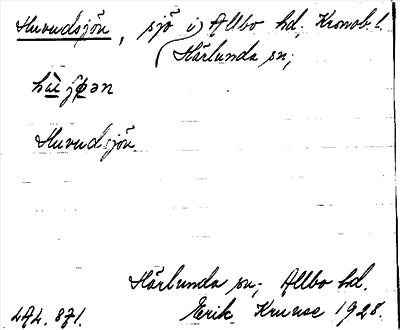 Huvudsjön, sjö i) Allbo hd, Kronob. l.
(Härlunda sn;
Huvudsjön
Härlunda sn; Allbo hd.
Erik Kruuse 1928.